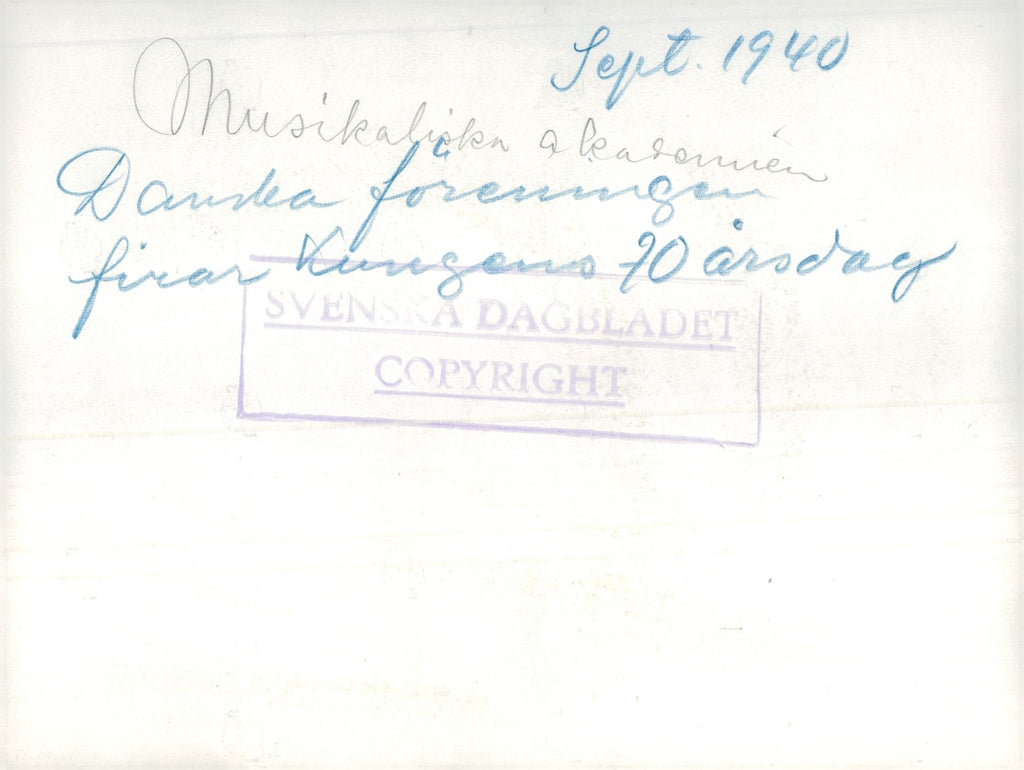 Sept. 1940
Musikaliska akademien
Danska föreningen
firar Kungens 70 årsdag
SVENSKA DAGBLADET
COPYRIGHT